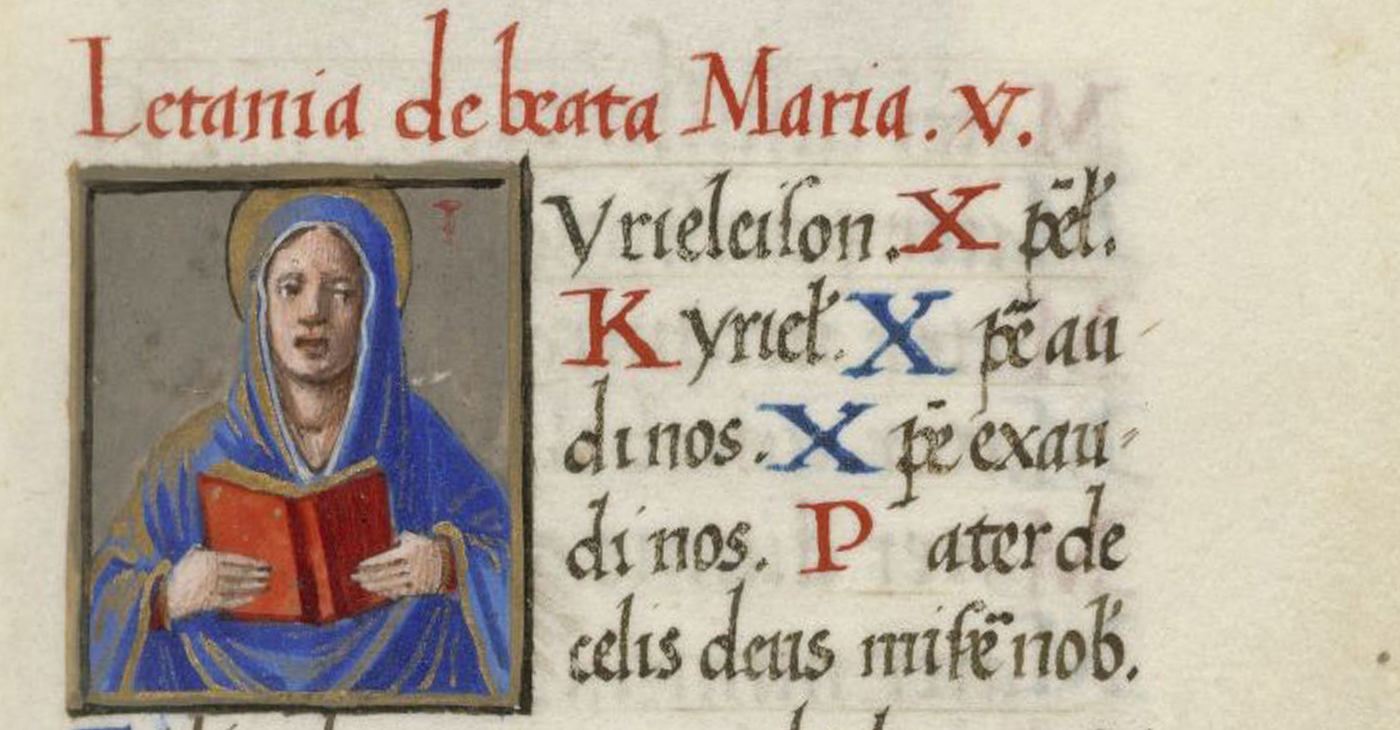 Letania de beata Maria. v.
yrieleiſon. X pēł.
K yrieł. X pē au
di nos. X pē exau-
di nos. P ater de
celis deus miſeͬ nob̉.